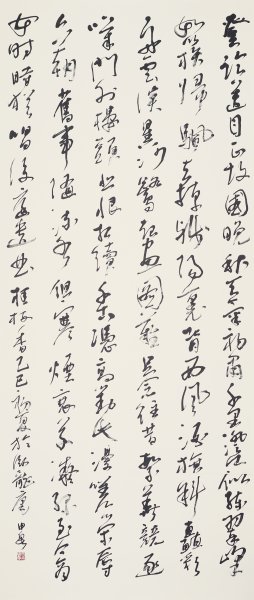 登臨送目正故國晚秋天氣初肅千里澄江似練翠峰
如簇歸颿去棹殘陽裏背西風酒旗斜矗彩
舟雲淡星河鷺起畫圖難足念往昔繁華競逐
嘆門外樓頭悲恨相續千古憑高對此漫嗟榮辱
六朝舊事隨流水但寒煙衰草凝綠至今商
女時時猶唱後庭遺曲桂枝香乙巳初夏於臥龍庵